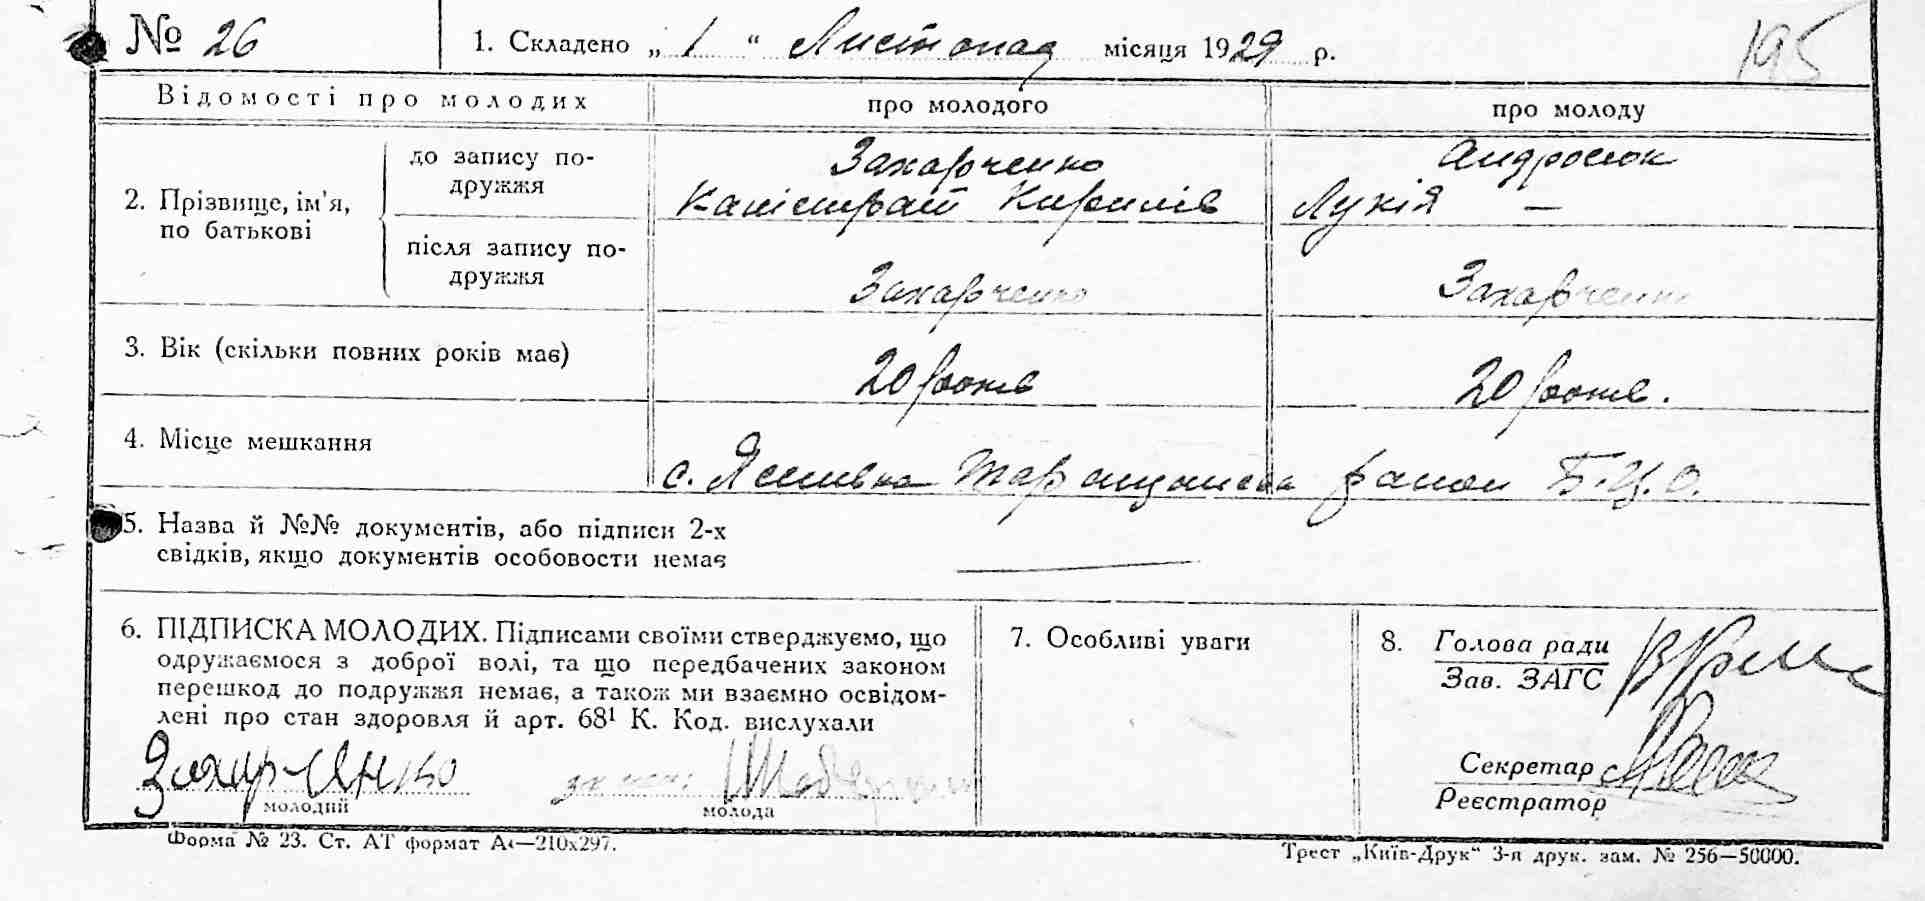 № 26
1. Складено „ 1 “ Листопад місяця 1929 р.
195
Відомості про молодих
про молодого
про молоду
2. Прізвище, ім'я,
по батькові
до запису по-
дружжя
Захарченко
Каністрат Кирилів
Андросюк
Лукія —
після запису по-
дружжя
Захарченко
Захарченко
3. Вік (скільки повних років має)
20 років
20 років.
4. Місце мешкання
с. Таращанськ район Б.Ц.О.
5. Назва й №№ документів, або підписи 2-х
свідків, якщо документів особовости немає
6. ПІДПИСКА МОЛОДИХ. Підписами своїми стверджуємо, що
одружаємося з доброї волі, та що передбачених законом
перешкод до подружжя немає, а також ми взаємно освідом-
лені про стан здоровля й арт. 68¹ К. Код. вислухали
Захарченко
молодий
молода
7. Особливі уваги
8. Голова ради
Зав. ЗАГС
Секретар
Реєстратор
Форма № 23. Ст. АТ формат А4—210х297.
Трест „Київ-Друк“ 3-я друк. зам. № 256—50000.